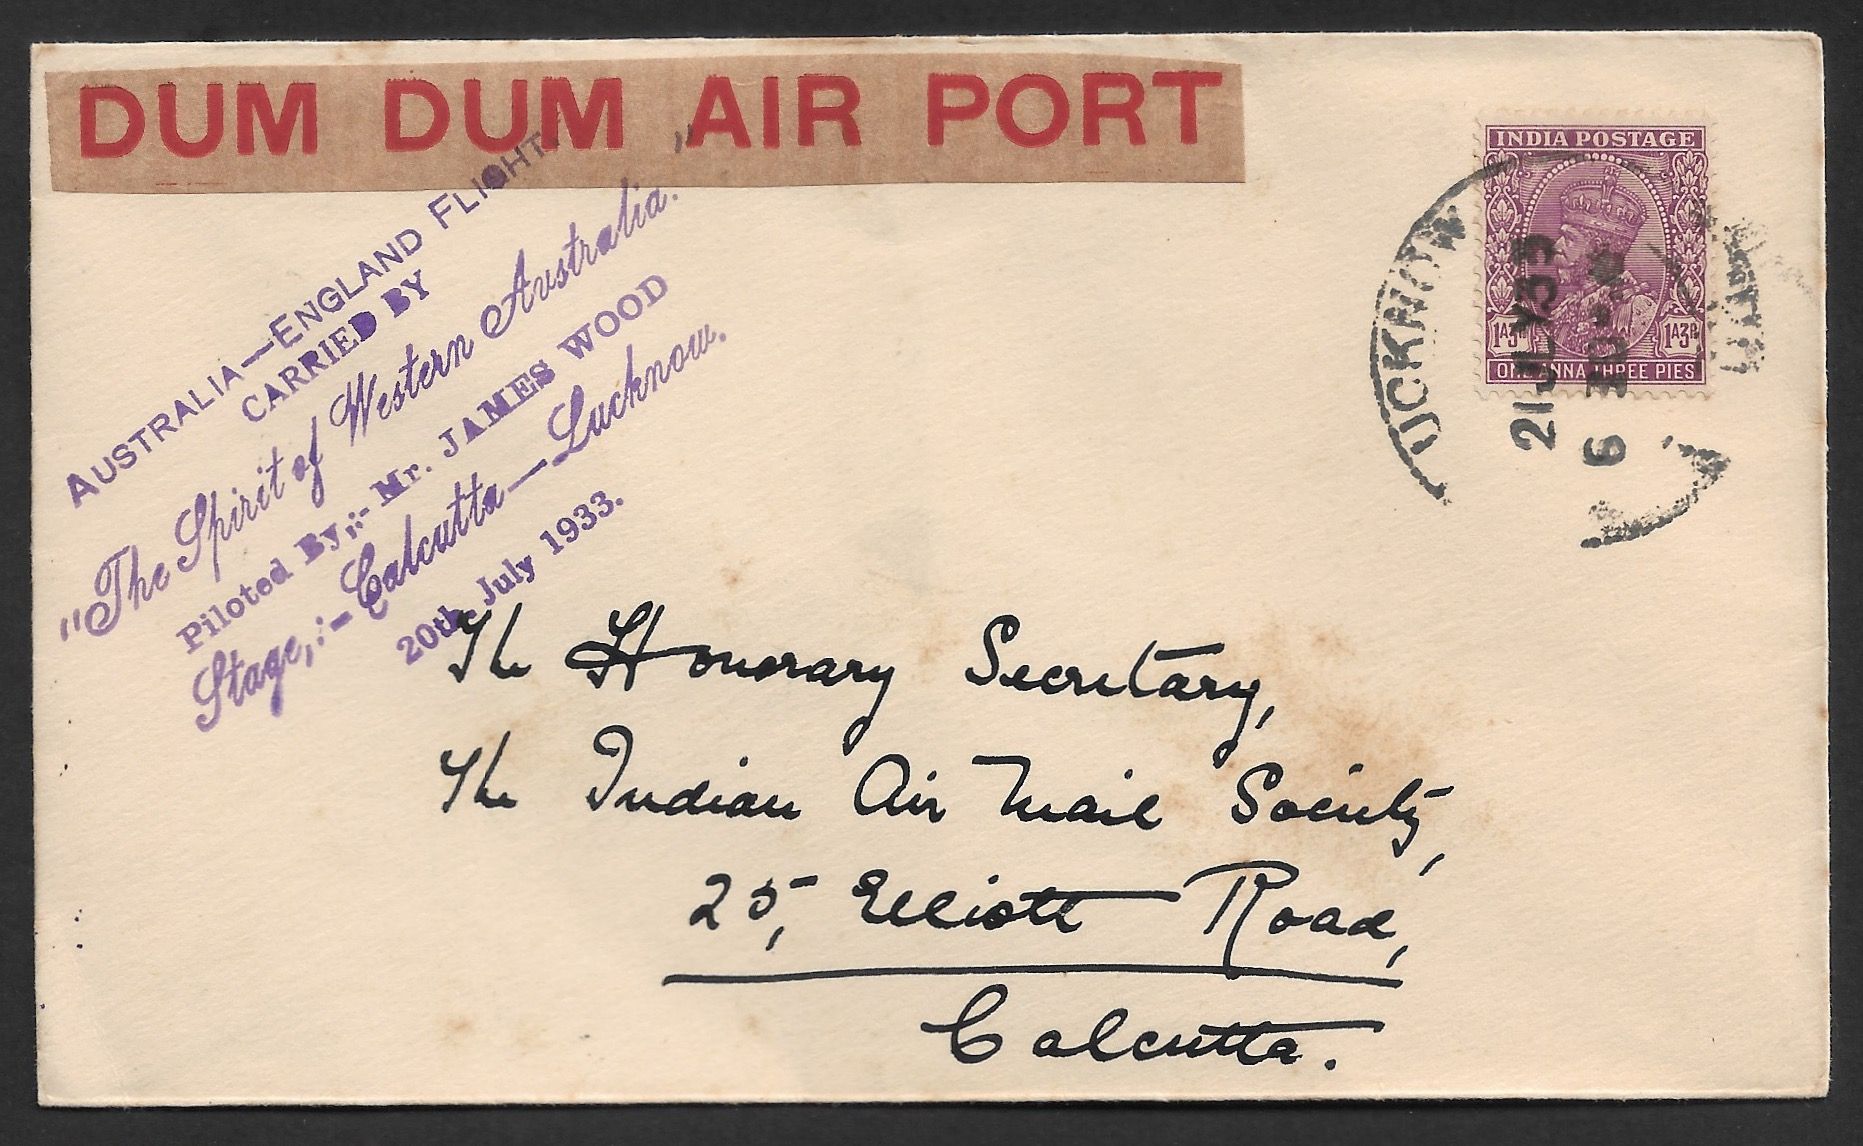 DUM DUM AIR PORT
AUSTRALIA—ENGLAND FLIGHT.
CARRIED BY
"The Spirit of Western Australia."
Piloted By,:- Mr. JAMES WOOD
Stage,:- Calcutta—Lucknow.
20th July 1933.
INDIA POSTAGE
1A3P 1A3P
ONE ANNA THREE PIES
LUCKNOW
21 JLY 33
The Honorary Secretary,
The Indian Air Mail Society,
25, Elliott Road,
Calcutta.